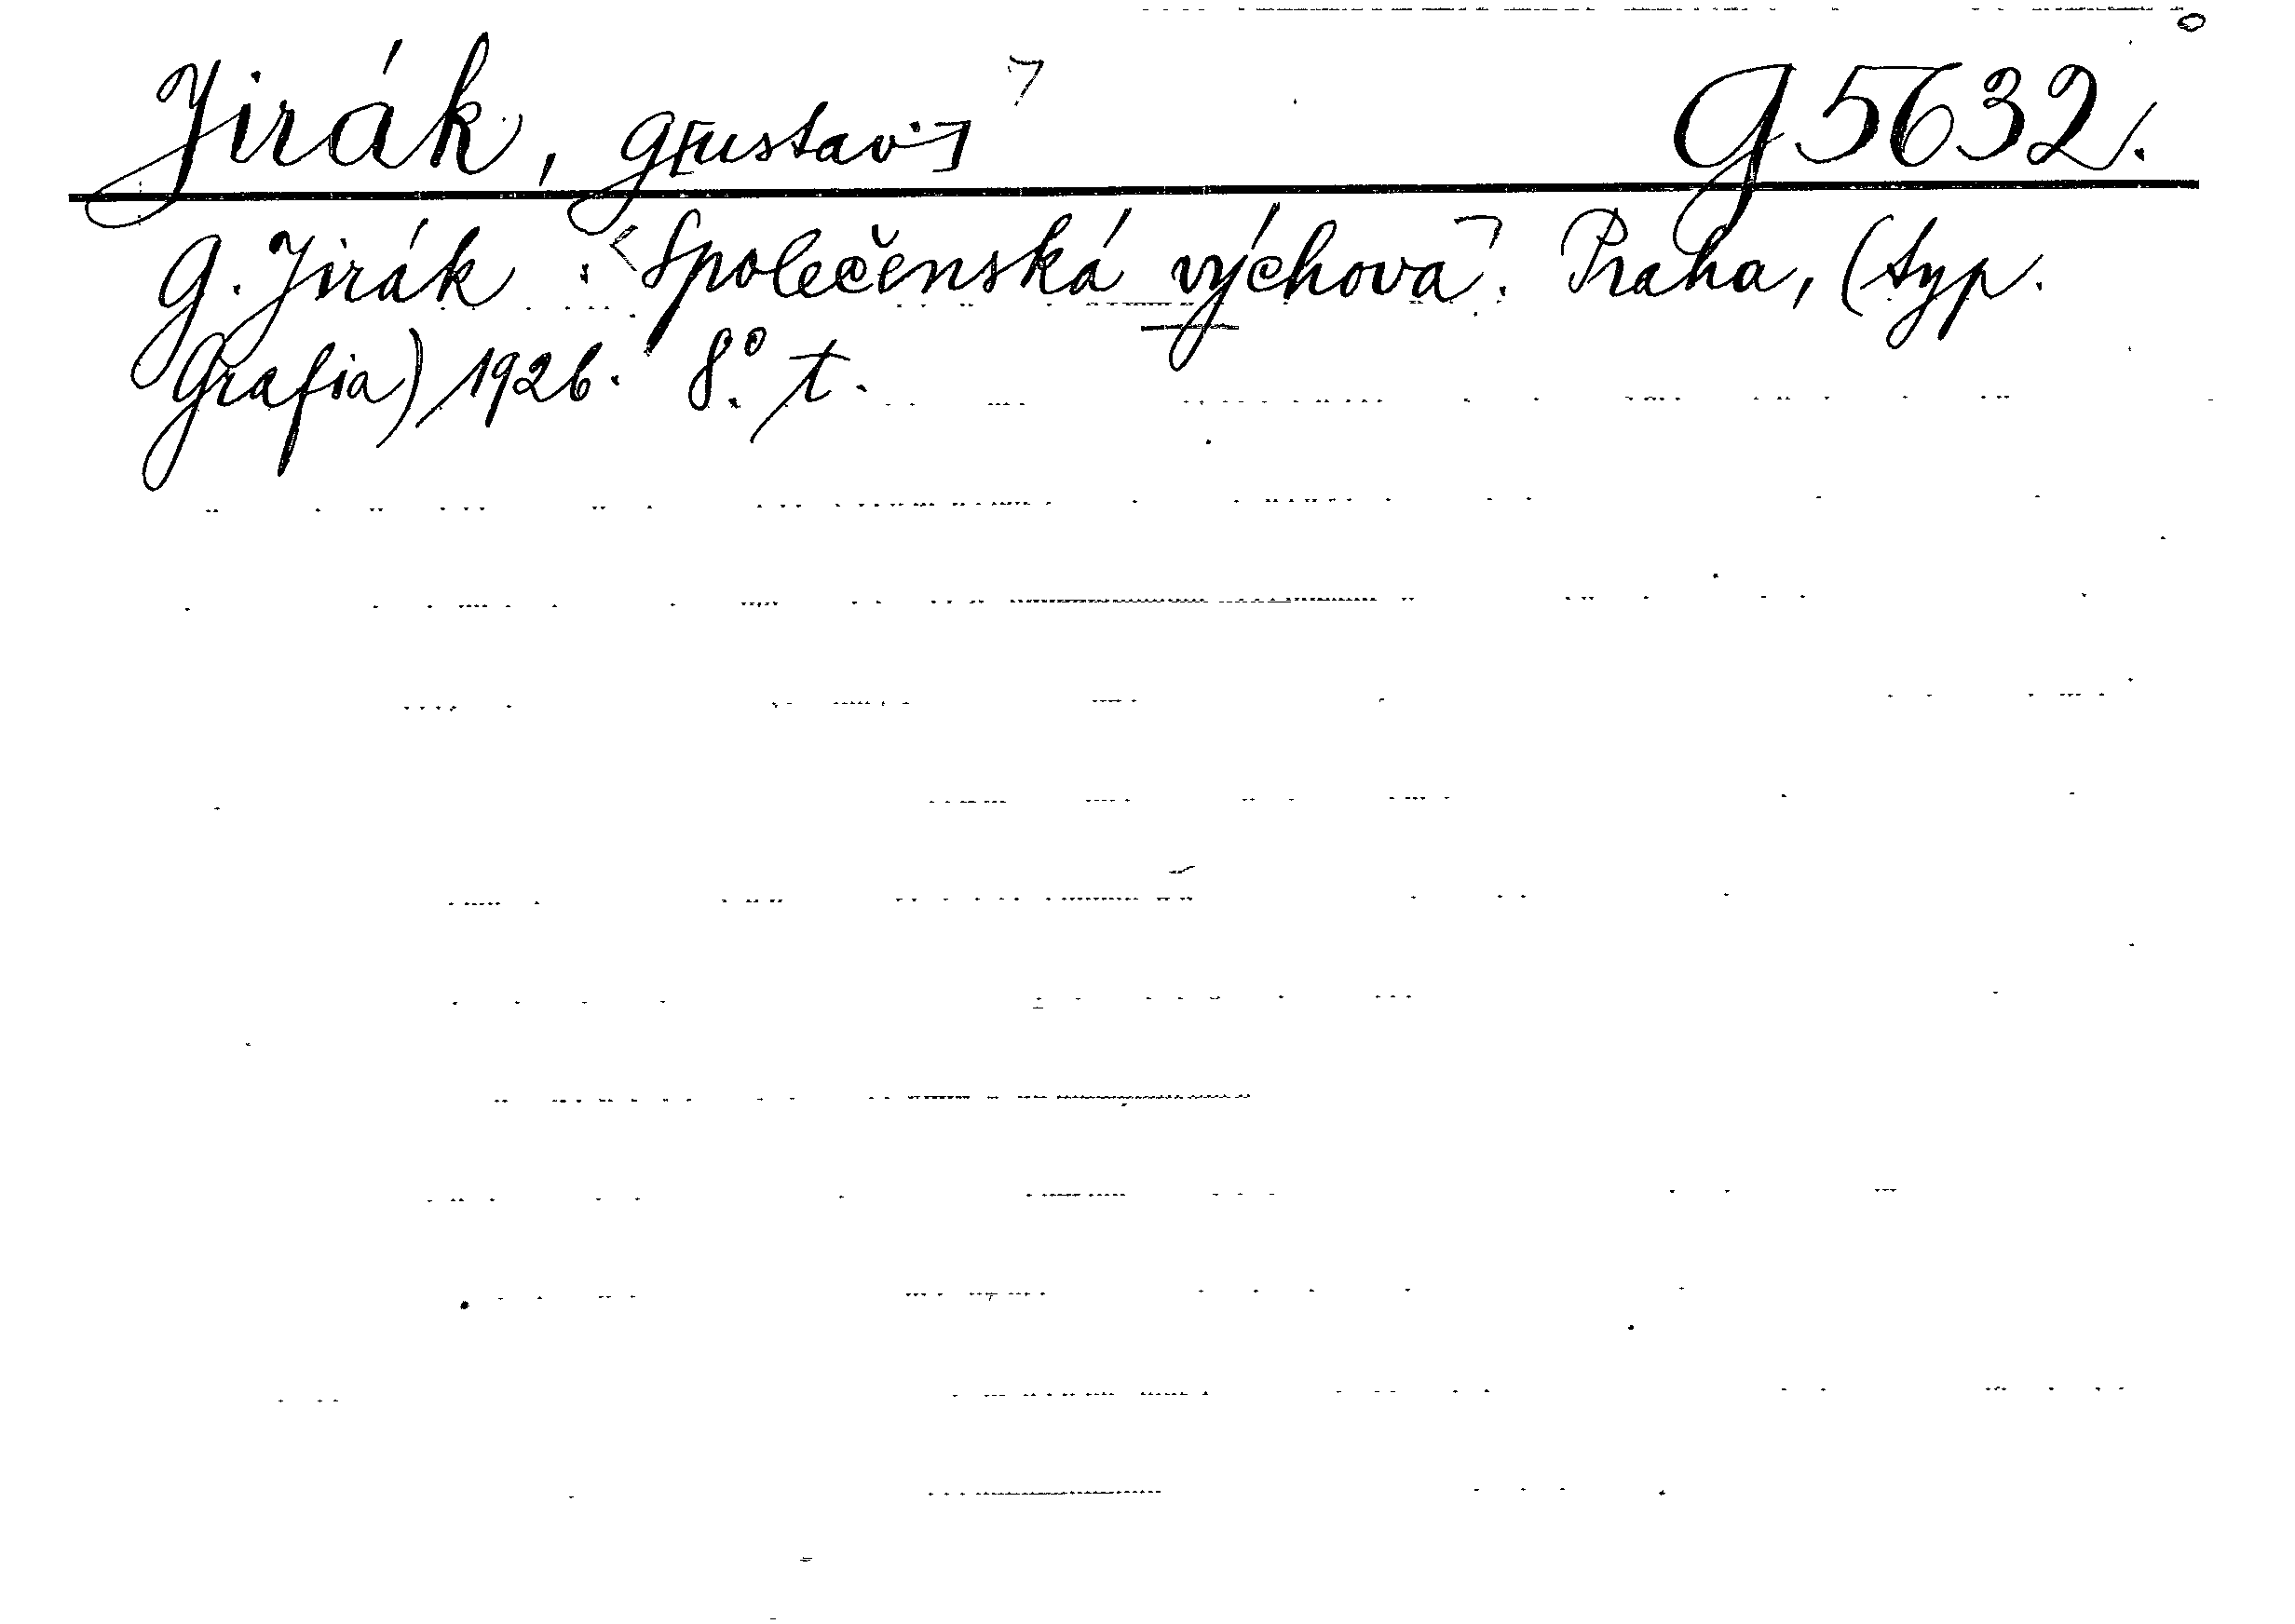 Jirák, G[ustav] G 5632.
G. Jirák : Společenská výchova. Praha, (typ.
Grafia) 1926. 8° t.